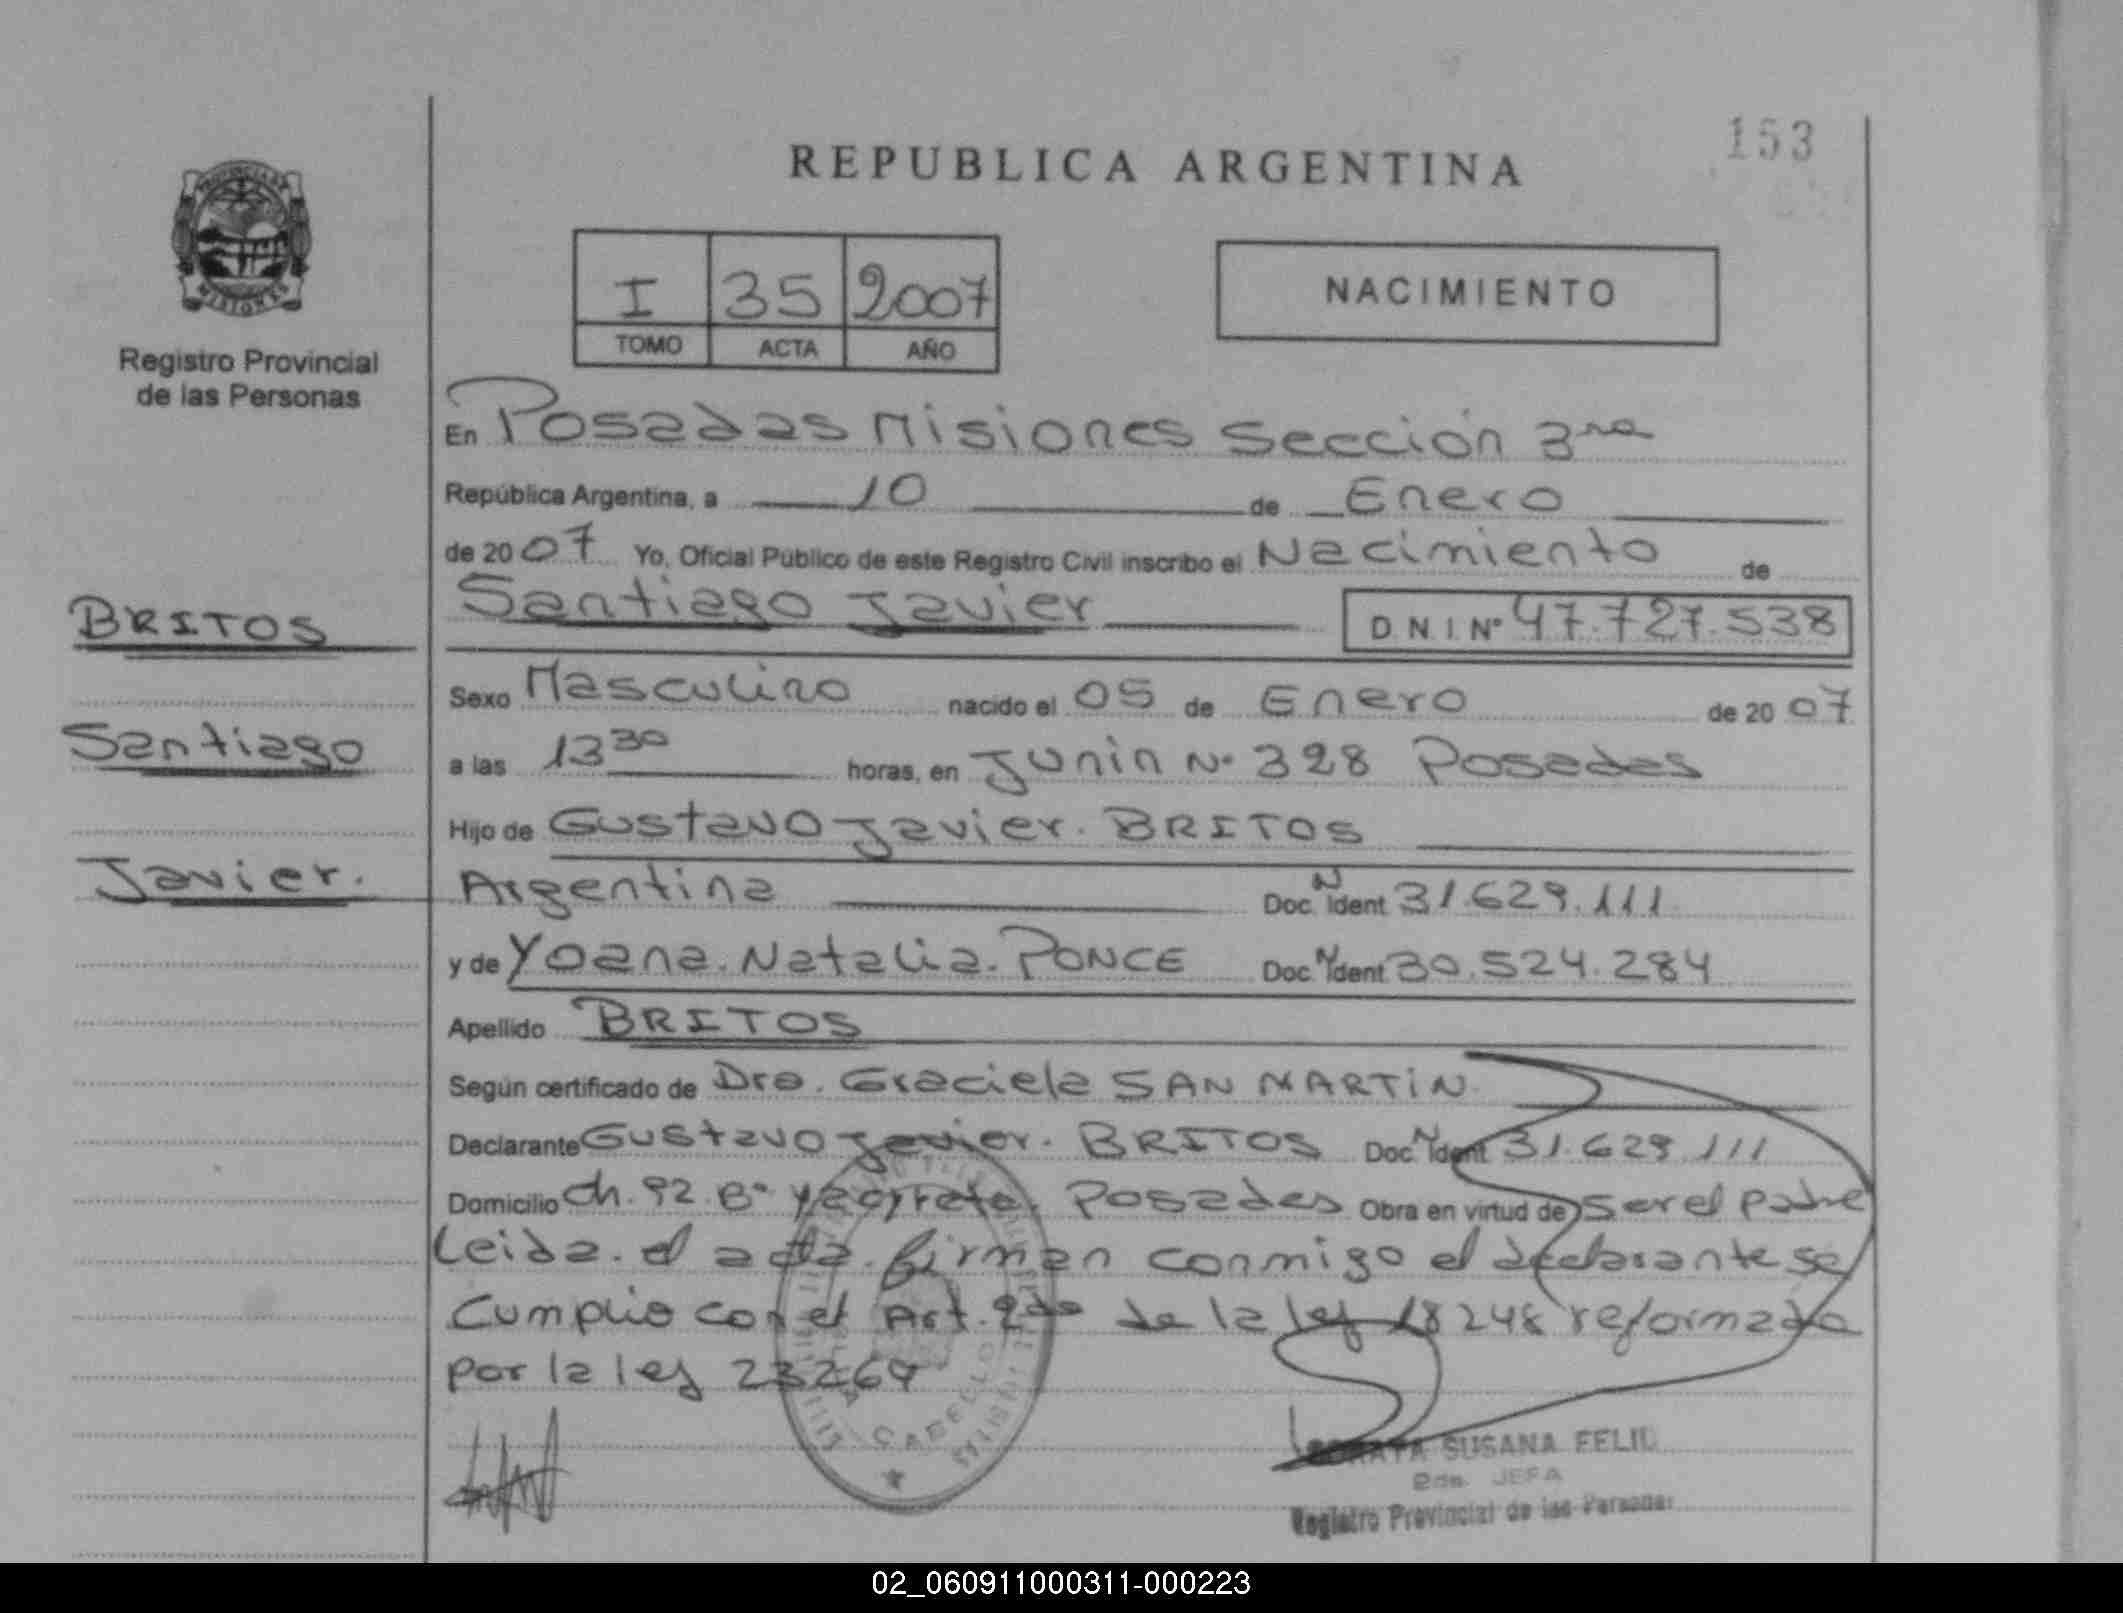 153
REPUBLICA ARGENTINA
PROVINCIA DE
MISIONES
Registro Provincial
de las Personas
I 35 2007
TOMO ACTA AÑO
NACIMIENTO
En Posadas Misiones Sección 3ra
República Argentina, a 10 de Enero
de 2007 Yo, Oficial Público de este Registro Civil inscribo el Nacimiento de
BRITOS
Santiago Javier D.N.I. Nº 47.727.538
Sexo Masculino nacido el 05 de Enero de 2007
Santiago
a las 13 30 horas, en Junin Nº 328 Posadas
Hijo de Gustavo Javier. BRITOS
Javier.
Argentina Doc. N Ident 31.629.111
y de Yoana. Natalia. PONCE Doc. N Ident 30.524.284
Apellido BRITOS
Según certificado de Dra. Graciela SAN MARTIN
Declarante Gustavo Javier. BRITOS Doc. N Ident 31.629.111
Domicilio Ch. 92 Bº Yacyreta. Posadas Obra en virtud de ser el padre
Leida. el acta. firman conmigo el declarante se
Cumplio con el Art. 2do de la ley 18248 reformada
por la ley 23264
CABECLO
SUSANA FELIU
2da. JEFA
Registro Provincial de las Personas
02_060911000311-000223